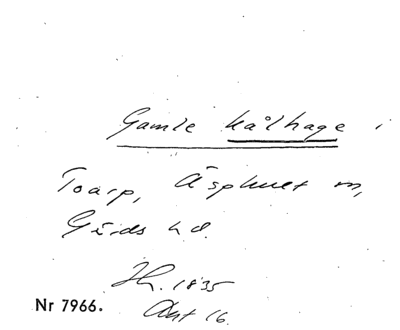 Gamle kålhage i
Toarp, Äsphult sn,
Gärds hd.
Hr. 1835
Akt 16.
Nr 7966.